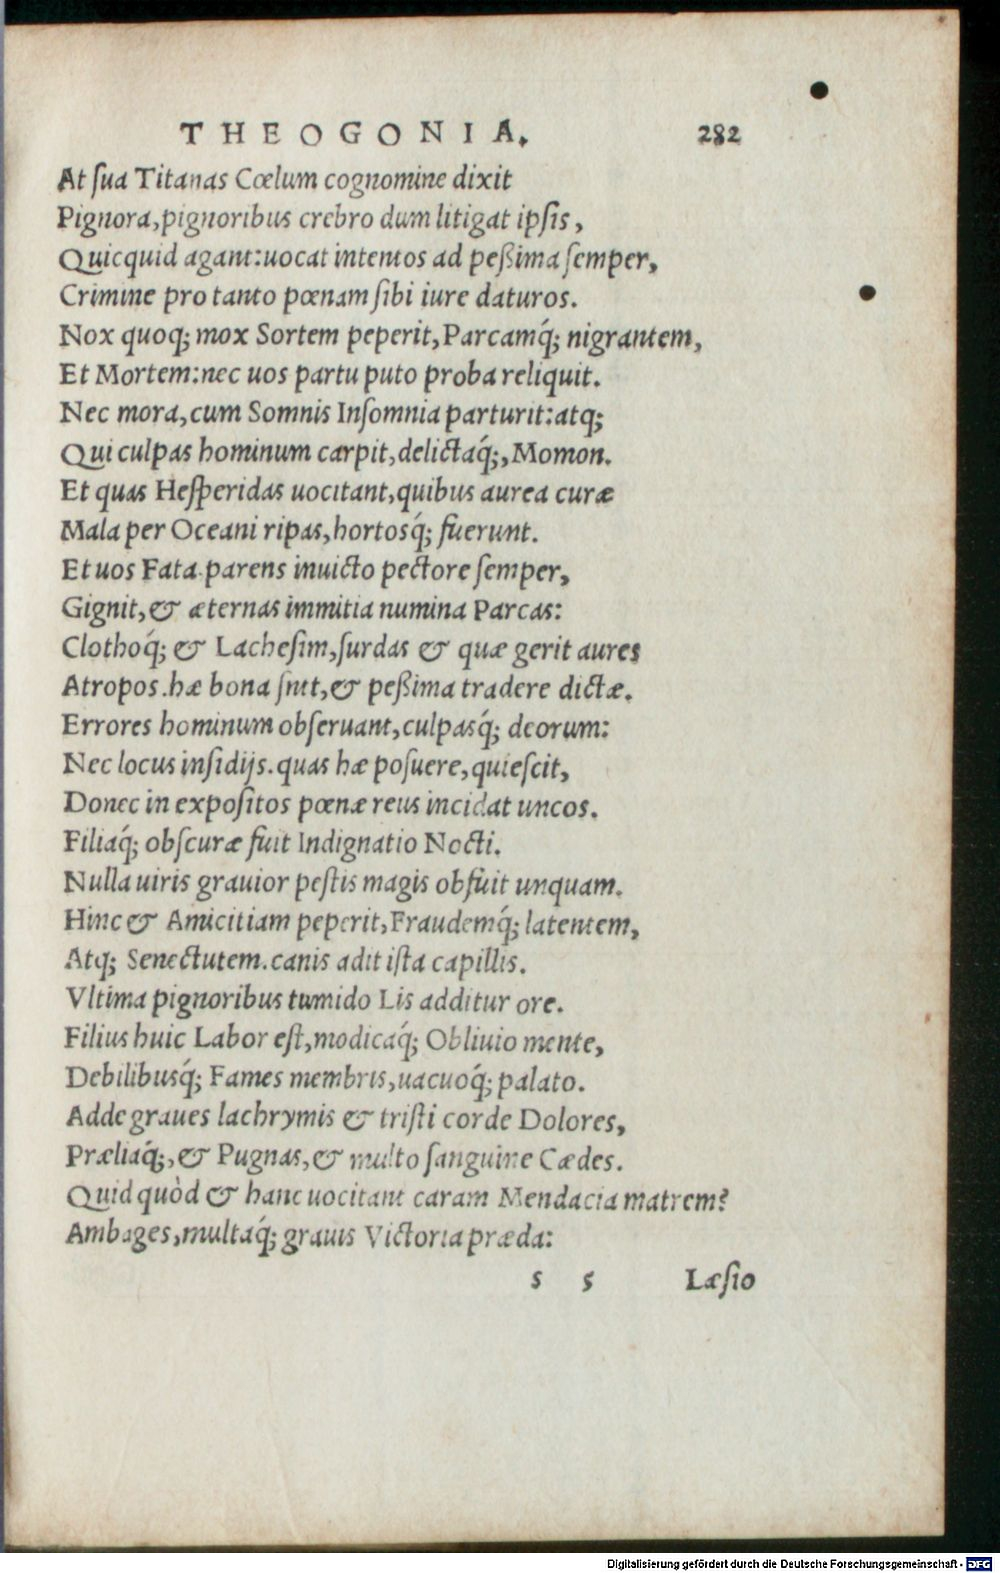 THEOGONIA. 282
At ſua Titanas Cœlum cognomine dixit
Pignora, pignoribus crebro dum litigat ipſis,
Quicquid agant: uocat intentos ad peßima ſemper,
Crimine pro tanto pœnam ſibi iure daturos.
Nox quoq; mox Sortem peperit, Parcamq́; nigrantem,
Et Mortem: nec uos partu puto proba reliquit.
Nec mora, cum Somnis Inſomnia parturit: atq;
Qui culpas hominum carpit, delictaq́;, Momon.
Et quas Heſperidas uocitant, quibus aurea curæ
Mala per Oceani ripas, hortosq́; fuerunt.
Et uos Fata parens inuicto pectore ſemper,
Gignit, & æternas immitia numina Parcas:
Clothoq́; & Lacheſim, ſurdas & quæ gerit aures
Atropos. hæ bona ſunt, & peßima tradere dictæ.
Errores hominum obſeruant, culpasq́; deorum:
Nec locus inſidijs. quas hæ poſuere, quieſcit,
Donec in expoſitos pœnæ reus incidat uncos.
Filiaq́; obſcuræ fuit Indignatio Nocti.
Nulla uiris grauior peſtis magis obfuit unquam.
Hinc & Amicitiam peperit, Fraudemq́; latentem,
Atq; Senectutem. canis adit iſta capillis.
Vltima pignoribus tumido Lis additur ore.
Filius huic Labor eſt, modicaq́; Obliuio mente,
Debilibusq́; Fames membris, uacuoq́; palato.
Adde graues lachrymis & triſti corde Dolores,
Præliaq́;, & Pugnas, & multo ſanguine Cædes.
Quid quòd & hanc uocitant caram Mendacia matrem?
Ambages, multaq́; grauis Victoria præda:
s 5 Læſio
Digitalisierung gefördert durch die Deutsche Forschungsgemeinschaft - DFG